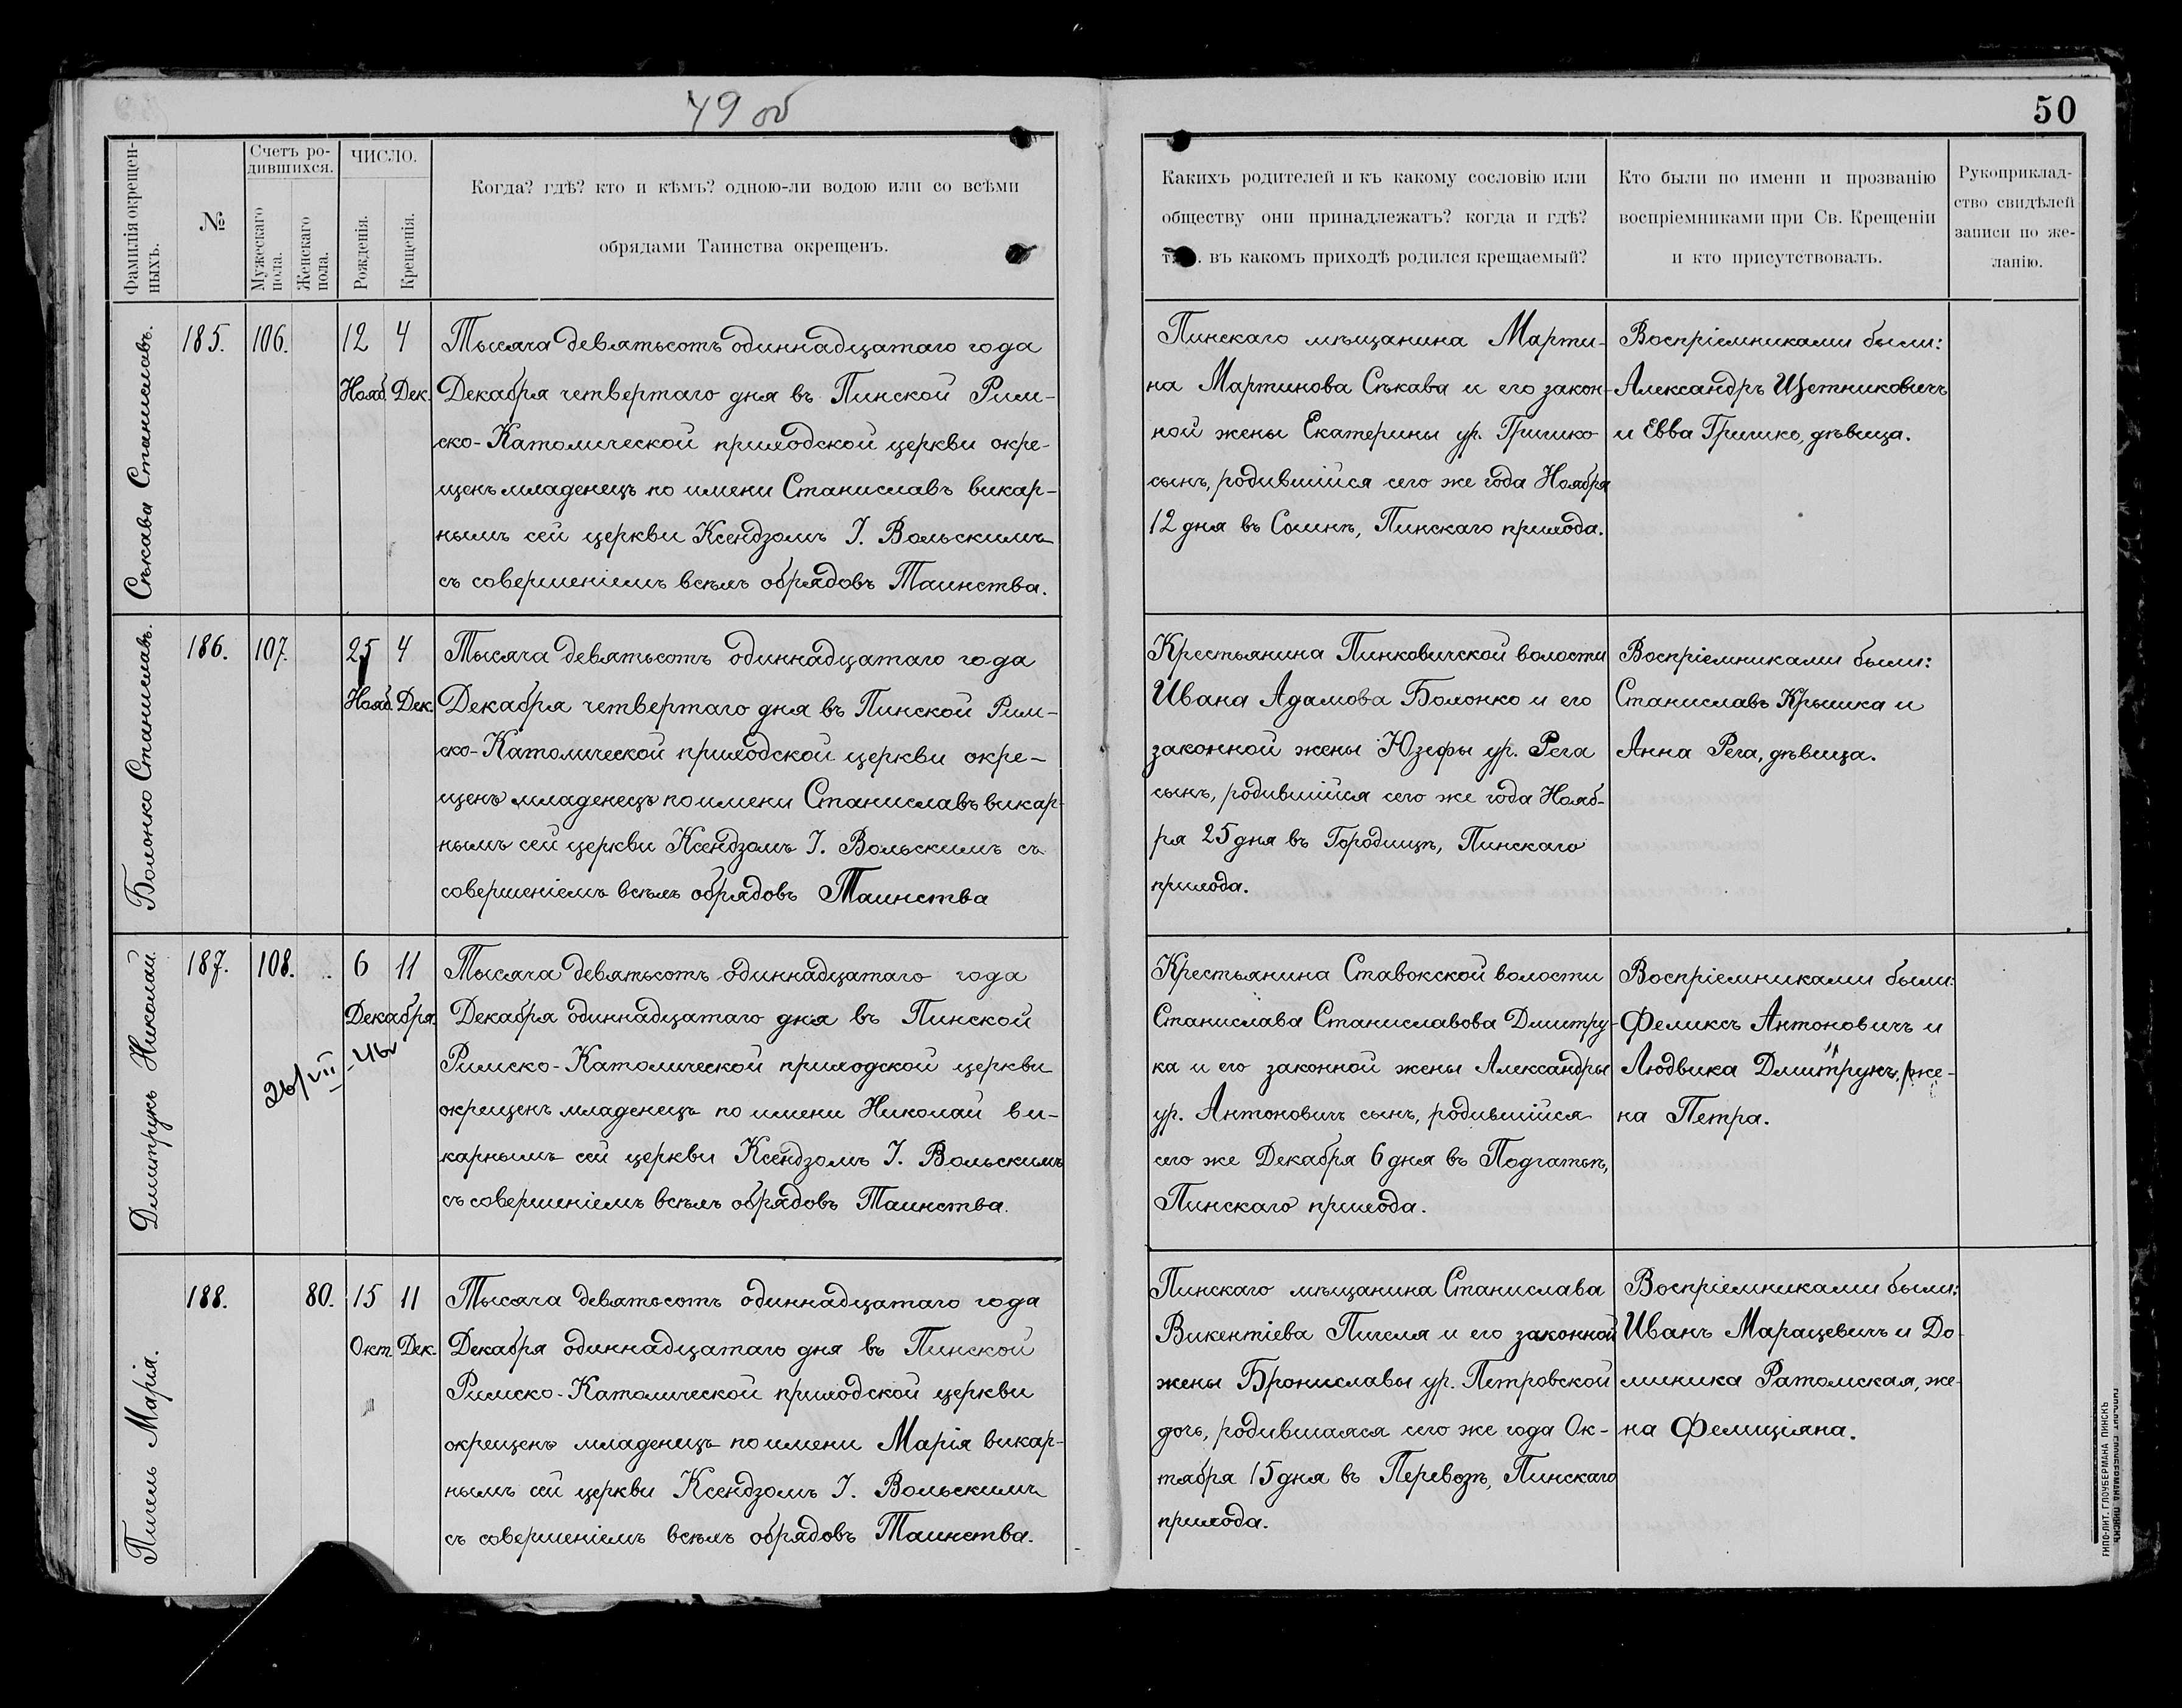 49 об
50
Фамилія окрещен-
ныхъ.
№
Счетъ ро-
дившихся.
Мужескаго
пола.
Женскаго
пола.
ЧИСЛО.
Рожденія.
Крещенія.
Когда? гдѣ? кто и кѣмъ? одною-ли водою или со всѣми
обрядами Таинства окрещенъ.
Какихъ родителей и къ какому сословію или
обществу они принадлежатъ? когда и гдѣ?
въ какомъ приходѣ родился крещаемый?
Кто были по имени и прозванію
воспріемниками при Св. Крещеніи
и кто присутствовалъ.
Рукоприклад-
ство свидѣлей
записи по же-
ланію.
Сѣкава Станиславъ.
185.
106.
12 4
Нояб. Дек.
Тысяча девятьсотъ одиннадцатаго года
Декабря четвертаго дня въ Пинской Рим-
ско-Католической приходской церкви окре-
щенъ младенецъ по имени Станиславъ викар-
нымъ сей церкви Ксендзомъ І. Вольскимъ
съ совершеніемъ всѣхъ обрядовъ Таинства.
Пинскаго мѣщанина Марти-
на Мартинова Сѣкава и его закон-
ной жены Екатерины ур. Гришко
сынъ, родившійся сего же года Ноября
12 дня въ Сошнѣ, Пинскаго прихода.
Воспріемниками были:
Александръ Щетниковичъ
и Евва Гришко, дѣвица.
Болонко Станиславъ.
186.
107.
25 4
Нояб. Дек.
Тысяча девятьсотъ одиннадцатаго года
Декабря четвертаго дня въ Пинской Рим-
ско-Католической приходской церкви окре-
щенъ младенецъ по имени Станиславъ викар-
нымъ сей церкви Ксендзомъ І. Вольскимъ съ
совершеніемъ всѣхъ обрядовъ Таинства
Крестьянина Пинковичской волости
Ивана Адамова Болонко и его
законной жены Юзефы ур. Рега
сынъ, родившійся сего же года Нояб-
ря 25 дня въ Городищѣ, Пинскаго
прихода.
Воспріемниками были:
Станиславъ Крышка и
Анна Рега, дѣвица.
Дмитрукъ Николай.
187.
108.
6 11
Декабря.
26/VII - 46
Тысяча девятьсотъ одиннадцатаго года
Декабря одиннадцатаго дня въ Пинской
Римско-Католической приходской церкви
окрещенъ младенецъ по имени Николай ви-
карнымъ сей церкви Ксендзомъ І. Вольскимъ
съ совершеніемъ всѣхъ обрядовъ Таинства.
Крестьянина Ставокской волости
Станислава Станиславова Дмитру-
ка и его законной жены Александры
ур. Антоновичъ сынъ, родившійся
сего же Декабря 6 дня въ Подгатьѣ,
Пинскаго прихода.
Воспріемниками были:
Феликсъ Антоновичъ и
Людвика Дмитрукъ, же-
на Петра.
Пигель Марія.
188.
80.
15 11
Окт. Дек.
Тысяча девятьсотъ одиннадцатаго года
Декабря одиннадцатаго дня въ Пинской
Римско-Католической приходской церкви
окрещенъ младенецъ по имени Марія викар-
нымъ сей церкви Ксендзомъ І. Вольскимъ
съ совершеніемъ всѣхъ обрядовъ Таинства.
Пинскаго мѣщанина Станислава
Викентіева Пигеля и его законной
жены Брониславы ур. Петровской
дочь, родившаяся сего же года Ок-
тября 15 дня въ Перевозѣ, Пинскаго
прихода.
Воспріемниками были:
Иванъ Марацевичъ и До-
миника Ратомская, же-
на Фелиціяна.
ТИПО-ЛИТ. ГЛОУБЕРМАНА ПИНСКЪ